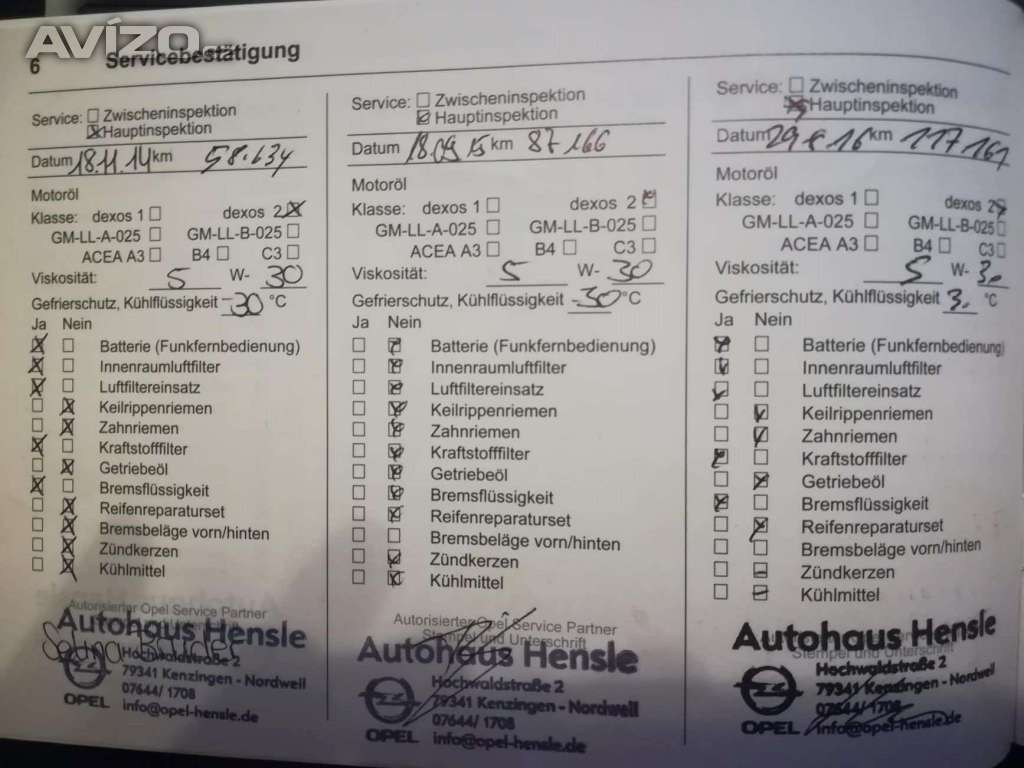 AVÍZO
6 Servicebestätigung
Service: Zwischeninspektion
Hauptinspektion
Datum 18.11.14 km 58.634
Motoröl
Klasse: dexos 1 dexos 2
GM-LL-A-025 GM-LL-B-025
ACEA A3 B4 C3
Viskosität: 5 W- 30
Gefrierschutz, Kühlflüssigkeit -30 °C
Ja Nein
Batterie (Funkfernbedienung)
Innenraumluftfilter
Luftfiltereinsatz
Keilrippenriemen
Zahnriemen
Kraftstofffilter
Getriebeöl
Bremsflüssigkeit
Reifenreparaturset
Bremsbeläge vorn/hinten
Zündkerzen
Kühlmittel
Autorisierter Opel Service Partner
Autohaus Hensle
Hochwaldstraße 2
79341 Kenzingen - Nordweil
07644/ 1708
OPEL info@opel-hensle.de
Service: Zwischeninspektion
Hauptinspektion
Datum 18.09.15 km 87 166
Motoröl
Klasse: dexos 1 dexos 2
GM-LL-A-025 GM-LL-B-025
ACEA A3 B4 C3
Viskosität: 5 W- 30
Gefrierschutz, Kühlflüssigkeit -30 °C
Ja Nein
Batterie (Funkfernbedienung)
Innenraumluftfilter
Luftfiltereinsatz
Keilrippenriemen
Zahnriemen
Kraftstofffilter
Getriebeöl
Bremsflüssigkeit
Reifenreparaturset
Bremsbeläge vorn/hinten
Zündkerzen
Kühlmittel
Autorisierter Opel Service Partner
Stempel und Unterschrift
Autohaus Hensle
Hochwaldstraße 2
79341 Kenzingen - Nordweil
07644/ 1708
OPEL info@opel-hensle.de
Service: Zwischeninspektion
Hauptinspektion
Datum 29 8 16 km 117 161
Motoröl
Klasse: dexos 1 dexos 2
GM-LL-A-025 GM-LL-B-025
ACEA A3 B4 C3
Viskosität: 5 W- 30
Gefrierschutz, Kühlflüssigkeit 30 °C
Ja Nein
Batterie (Funkfernbedienung)
Innenraumluftfilter
Luftfiltereinsatz
Keilrippenriemen
Zahnriemen
Kraftstofffilter
Getriebeöl
Bremsflüssigkeit
Reifenreparaturset
Bremsbeläge vorn/hinten
Zündkerzen
Kühlmittel
Autohaus Hensle
Stempel und Unterschrift
Hochwaldstraße 2
79341 Kenzingen - Nordweil
07644/ 1708
OPEL info@opel-hensle.de